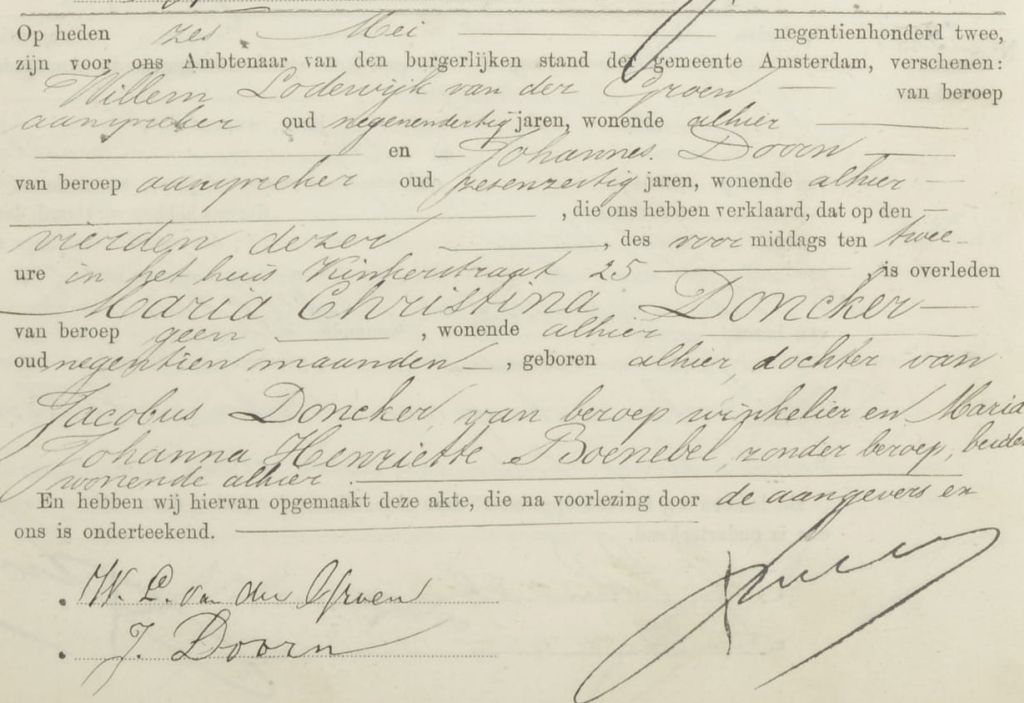 Op heden zes Mei negentienhonderd twee,
zijn voor ons Ambtenaar van den burgerlijken stand der gemeente Amsterdam, verschenen:
Willem Lodewijk van der Groen van beroep
aanspreker oud negenendertig jaren, wonende alhier
en Johannes Doorn
van beroep aanspreker oud zesenzestig jaren, wonende alhier
, die ons hebben verklaard, dat op den
vierden dezer , des voor middags ten twee
ure in het huis Kinkerstraat 25 is overleden
Maria Christina Doncker
van beroep geen , wonende alhier
oud negentien maanden , geboren alhier, dochter van
Jacobus Doncker, van beroep winkelier en Maria
Johanna Henriette Boenebel, zonder beroep, beiden
wonende alhier.
En hebben wij hiervan opgemaakt deze akte, die na voorlezing door de aangevers en
ons is onderteekend.
W. L. van der Groen
J. Doorn